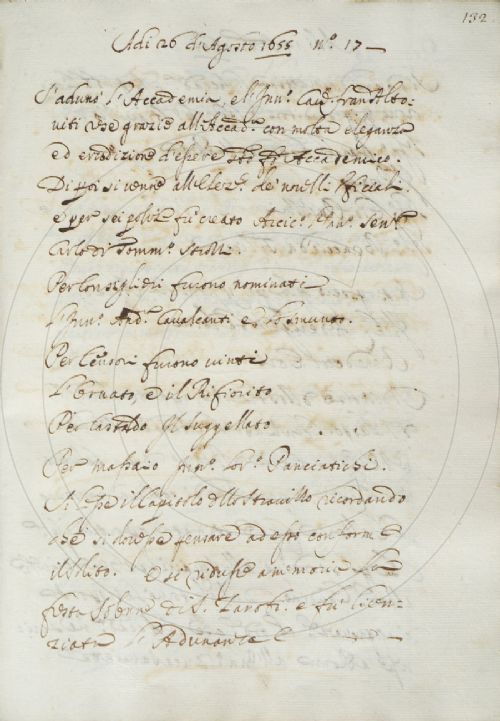 132
Adi 26 d'Agosto 1655 n.º 17
S'adunò l'Accademia, e l'Inn.º Cav.
viti rese grazie all'Accad.ª con molta eleganza
ed erudizione d'essere Accademico.
Di poi si venne all'Elez.e de novelli Ufficiali
e per sei polize fu creato Arcic.º
Carlo di Tomm.º Strozzi.
Per Consiglieri furono nominati
L'Inn.º And.ª Cavalcanti e
Per Censori furono vinti
L'Ornato, e il Rifiorito
Per Castaldo Il Suggellato
Per massaio Inn.º Lor.º Panciatichi.
Si lesse il Capitolo dello Stravizzo ricordando
che si dovesse pensare ad esso conforme
il solito. E si ridusse a memoria la
festa di S. Zanobi. e fu licen-
ziata l'Adunanza